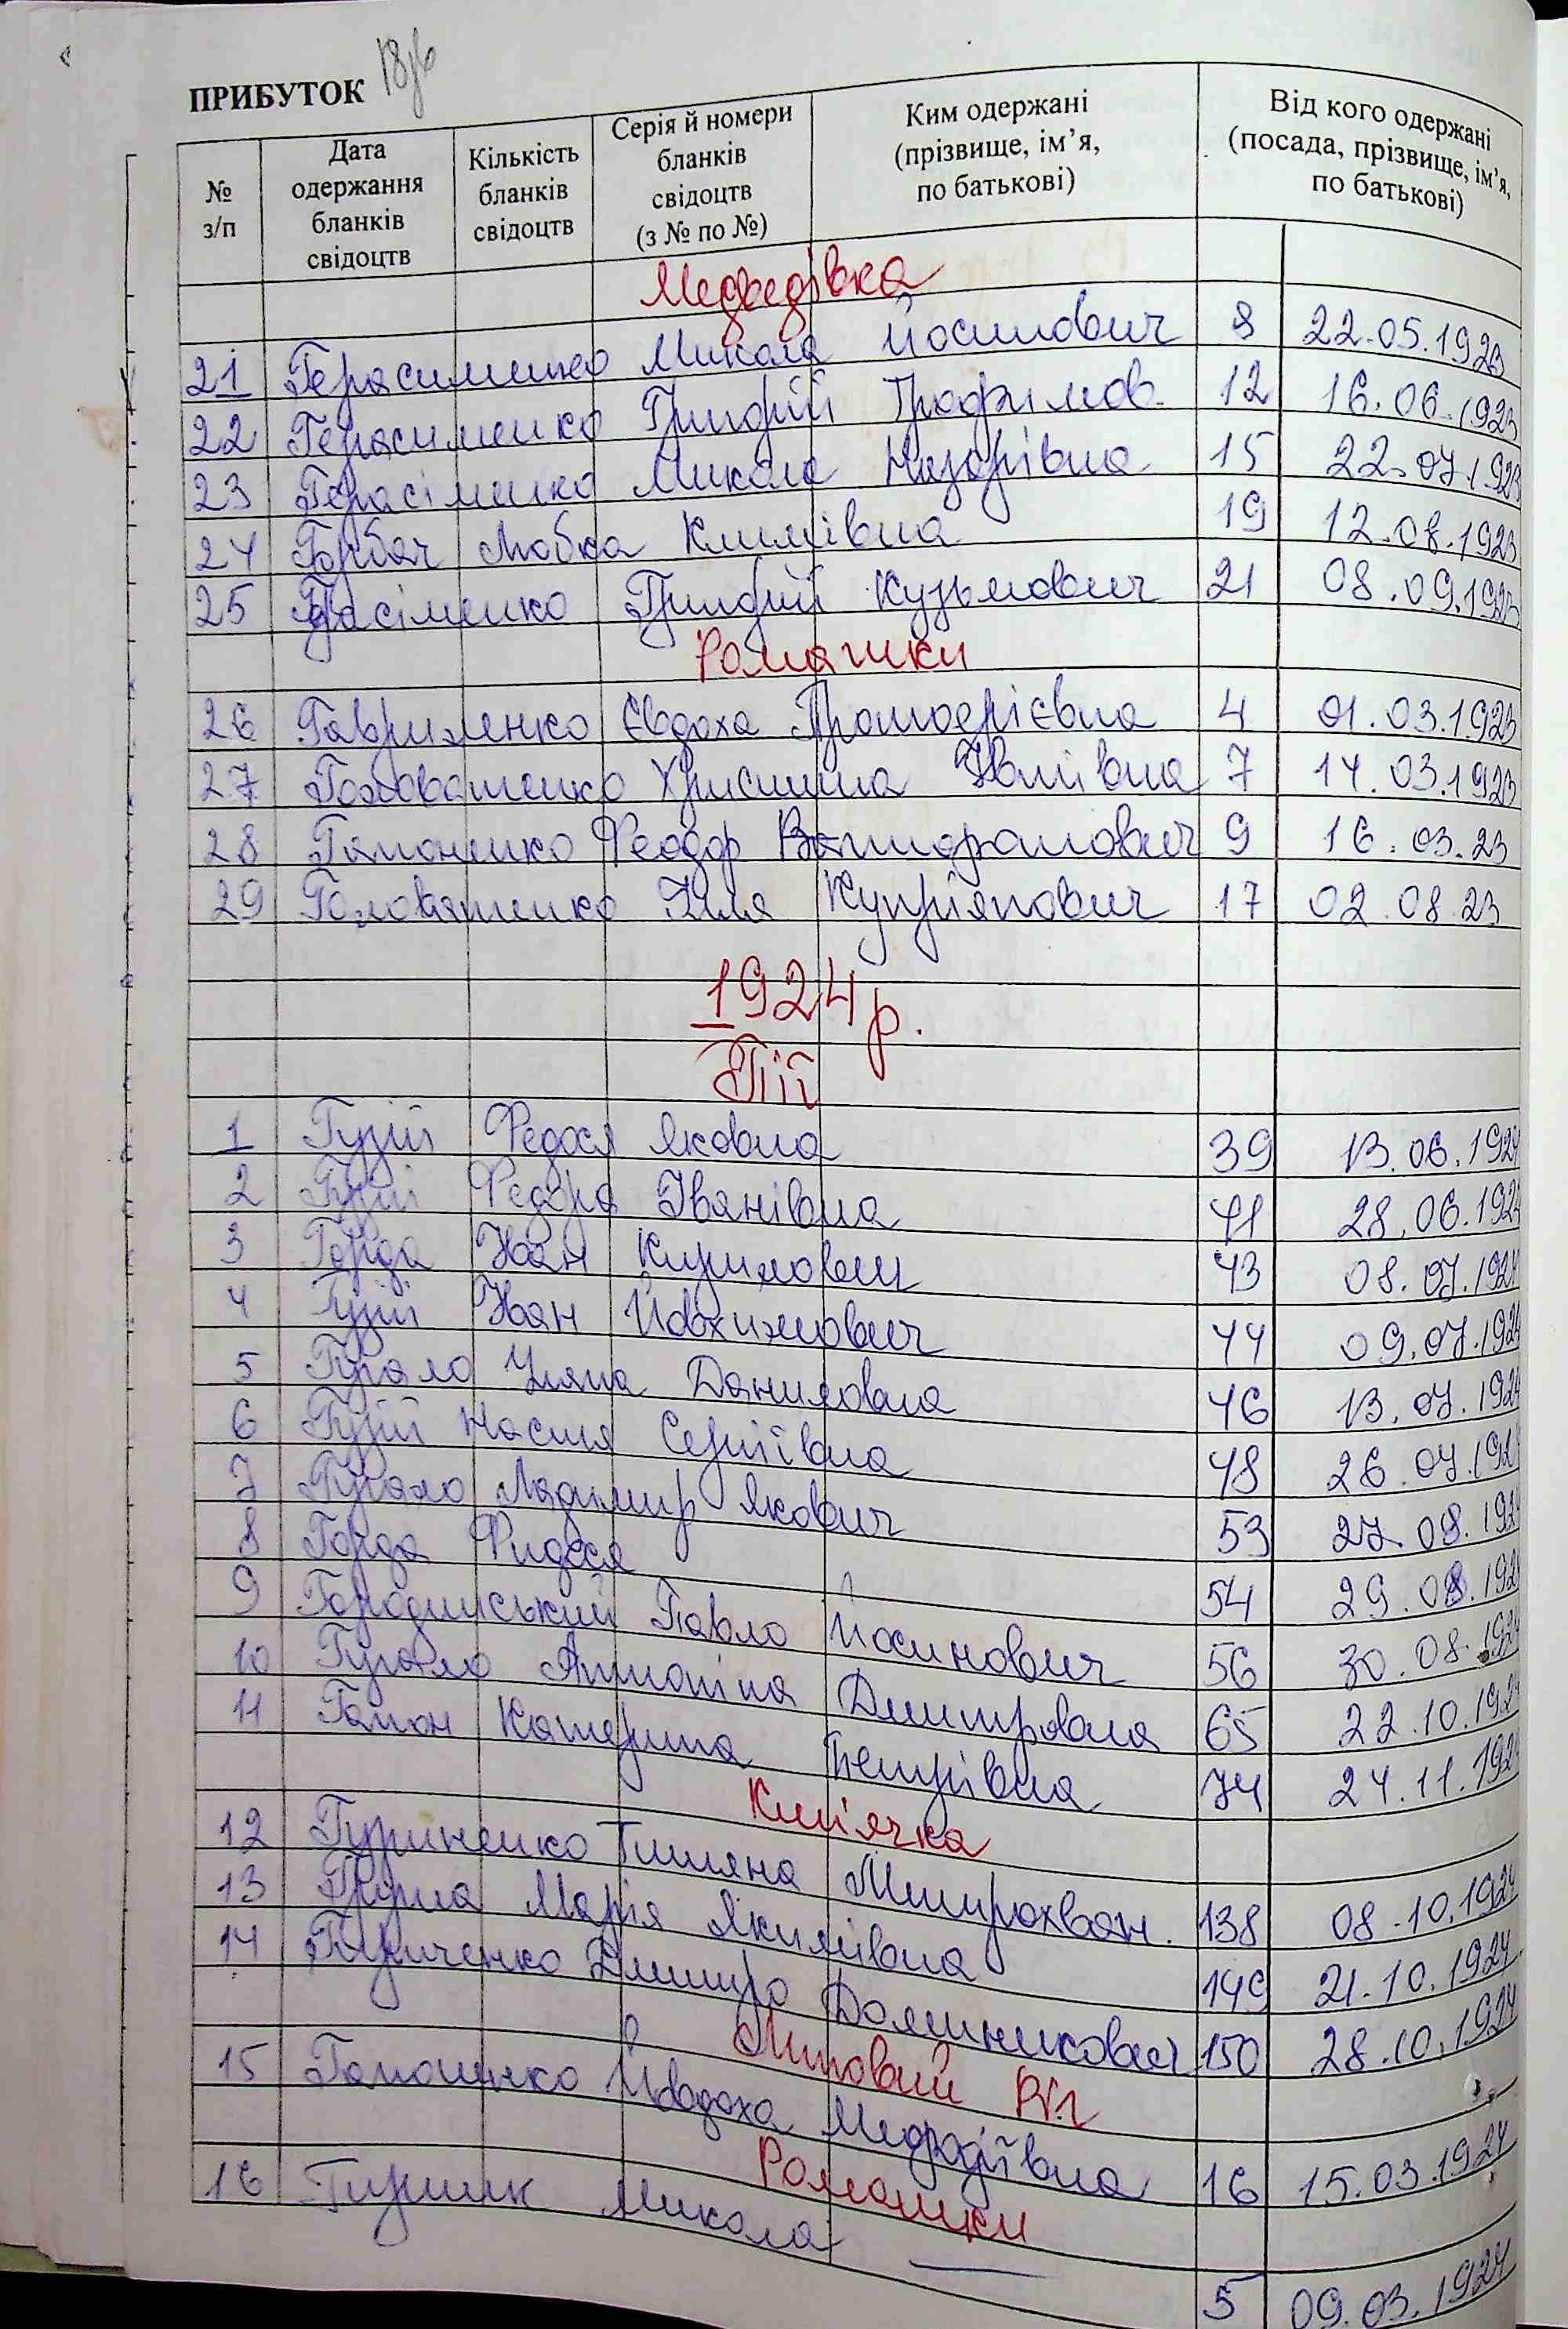 ПРИБУТОК
№ з/п
Дата одержання бланків свідоцтв
Кількість бланків свідоцтв
Серія й номери бланків свідоцтв (з № по №)
Ким одержані (прізвище, ім’я, по батькові)
Від кого одержані (посада, прізвище, ім’я, по батькові)
Медведівка
21 Герасименко Микола Йосипович 8 22.05.1923
22 Герасименко Григорій Трофимов. 12 16.06.1923
23 Герасіменко Микола Назарівна 15 22.07.1923
24 Горбач Любка Климівна 19 12.08.1923
25 Григорій Кузьмович 21 08.09.1923
Ромашки
26 Гавриленко Євдоха 4 01.03.1923
27 Головатенко Христина 7 14.03.1923
28 Гапоненко Феодор 9 16.03.23
29 Головатенко Ілля Купріянович 17 02.08.23
1924 р.
Гії
1 Гузій Федося Яковна 39 13.06.1924
2 Гузій Федора Іванівна 41 28.06.1924
3 Горда Іван Кирилович 43 08.07.1924
4 Гузій Іван Йовхимович 44 09.07.1924
5 Гугало Уляна Даниловна 46 13.07.1924
6 Гузій Настя Сергіївна 48 26.07.1924
7 Гугало Ладимир Якович 53 27.08.1924
8 Горда Фидося 54 29.08.1924
9 Городинський Павло Йосипович 56 30.08.1924
10 Гугало Антоніна Дмитровна 65 22.10.1924
11 Гапон Катерина Петрівна 74 24.11.1924
Кип'ячка
12 Гуриненко Титяна Митрохван. 138 08.10.1924
13 Марія Якимівна 149 21.10.1924
14 Дмитро 150 28.10.1924
Липовий Ріг
15 Гапоненко Йовдоха Медодіївна 16 15.03.1924
Ромашки
16 Микола — 5 09.03.1924